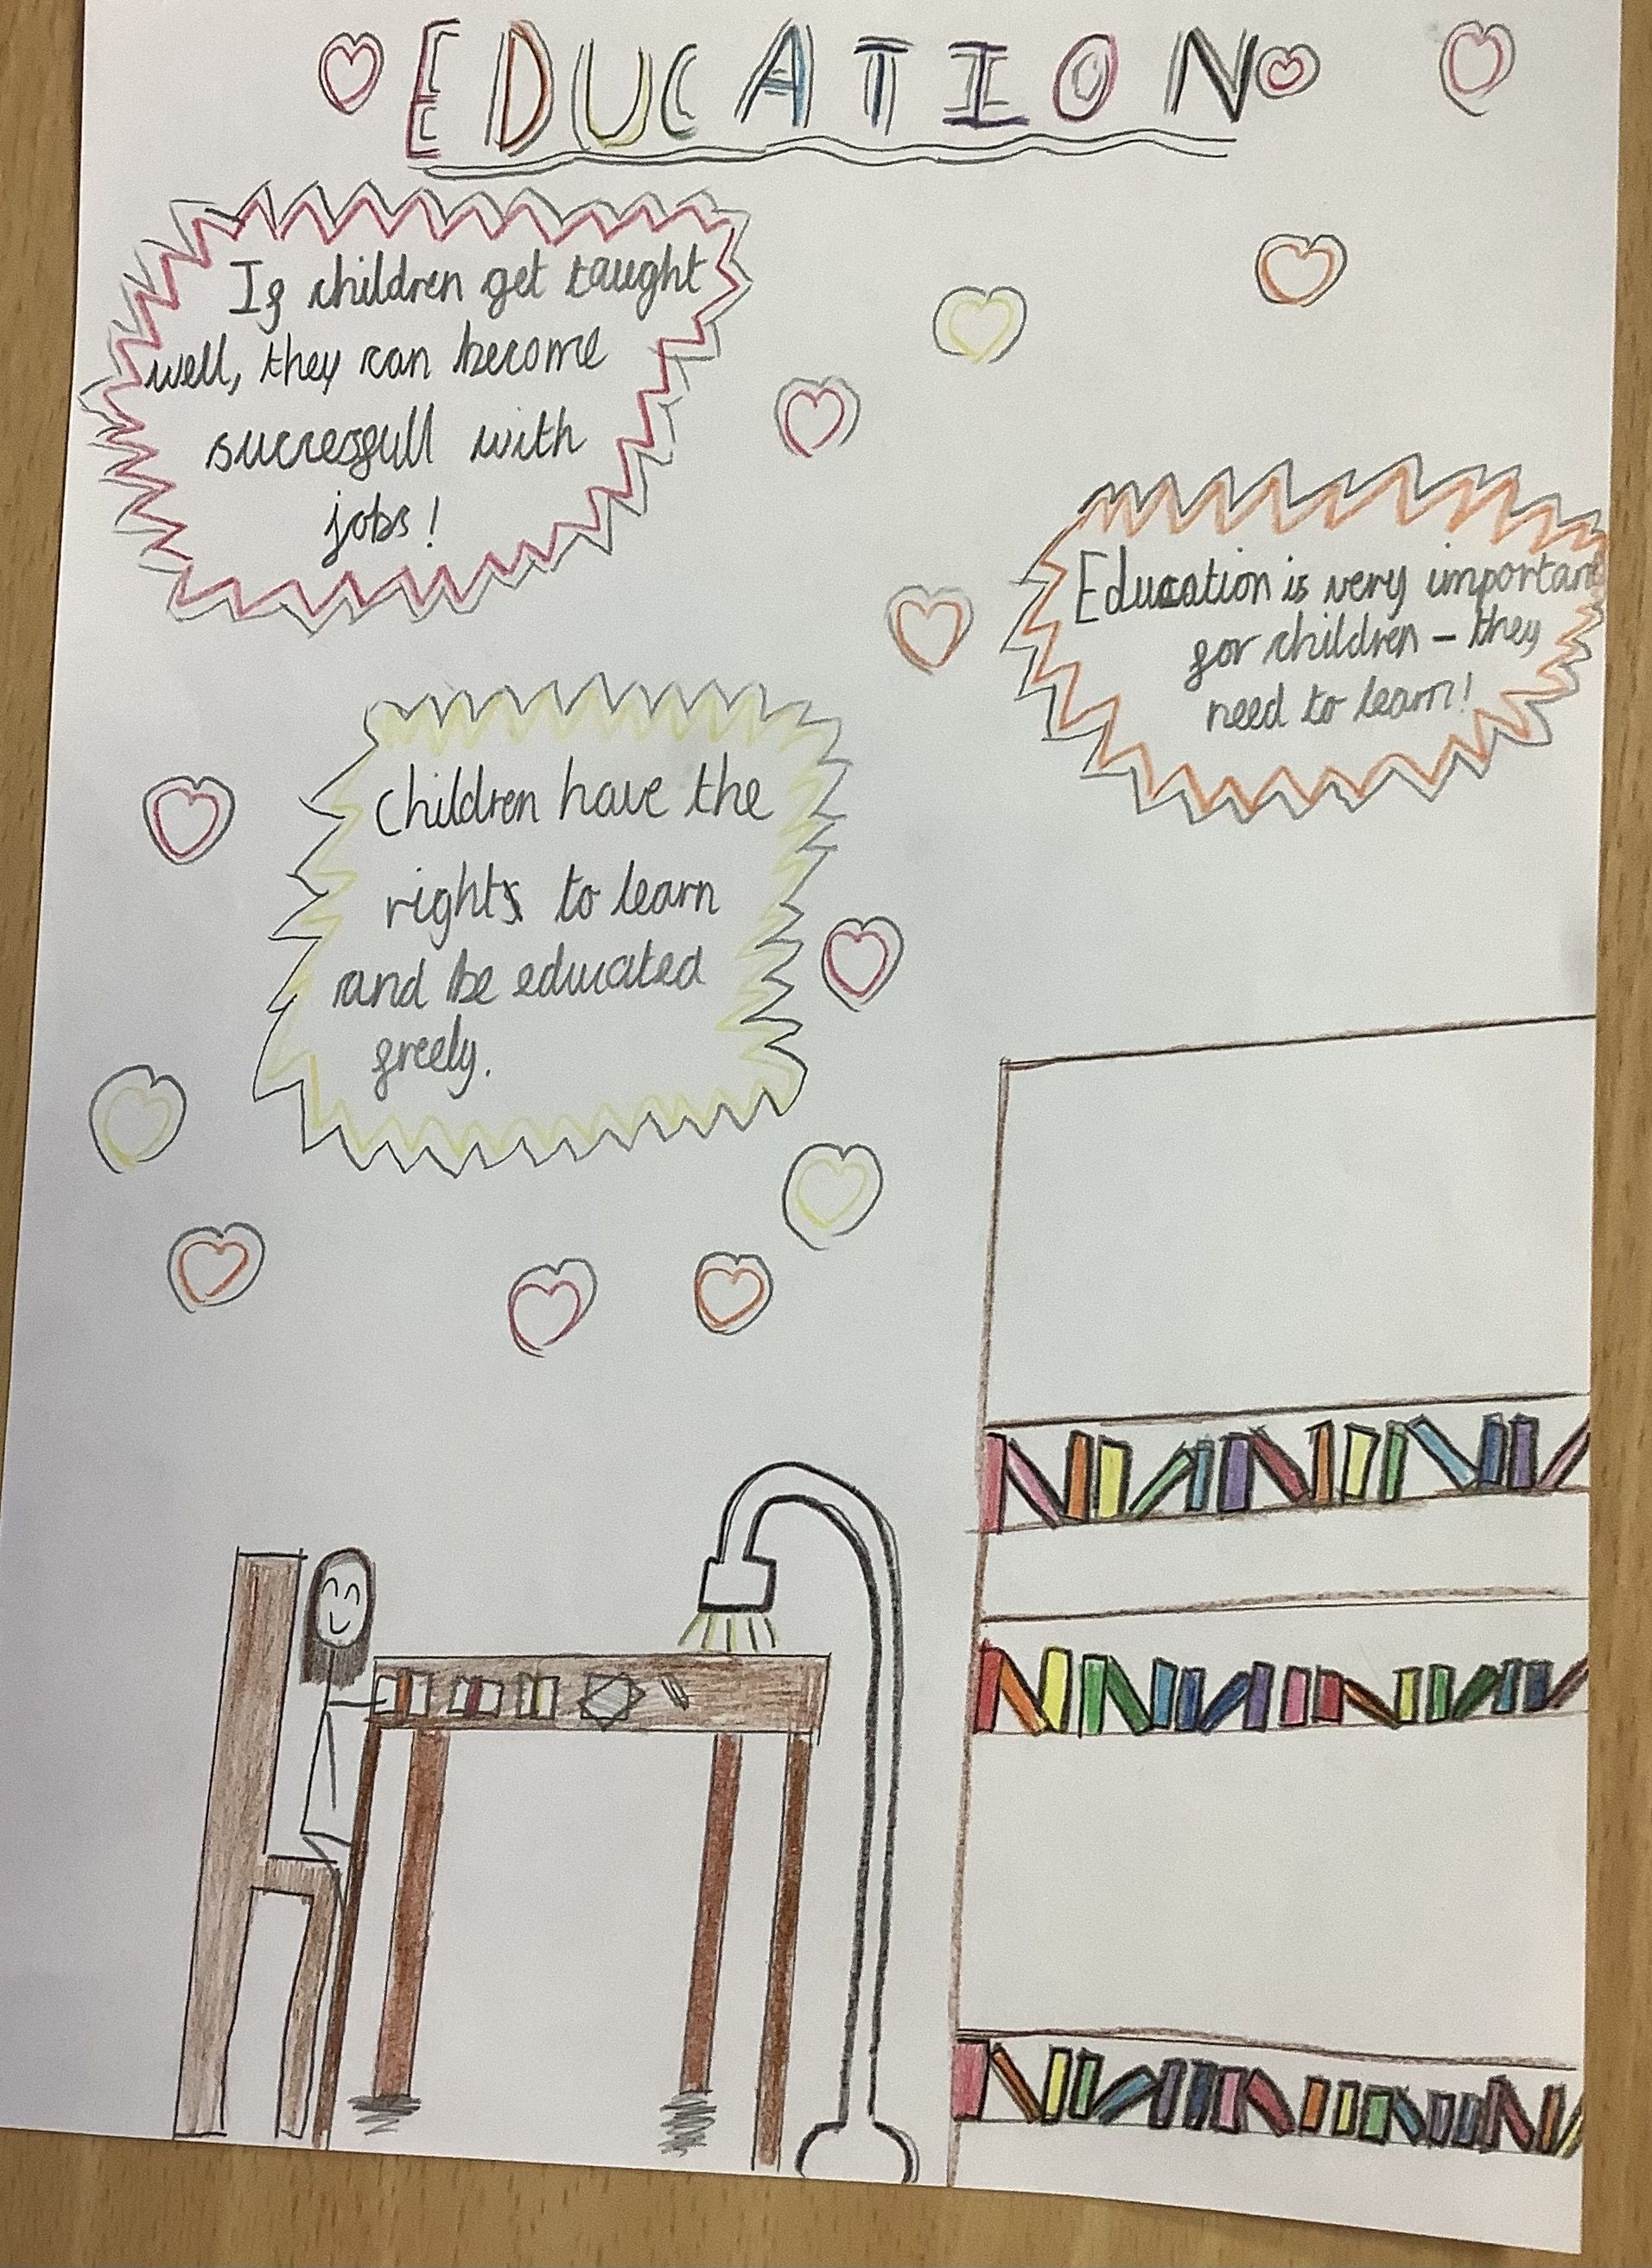 EDUCATION
If children get taught
well, they can become
successfull with
jobs!
Education is very important
for children – they
need to learn!
Children have the
right to learn
and be educated
freely.